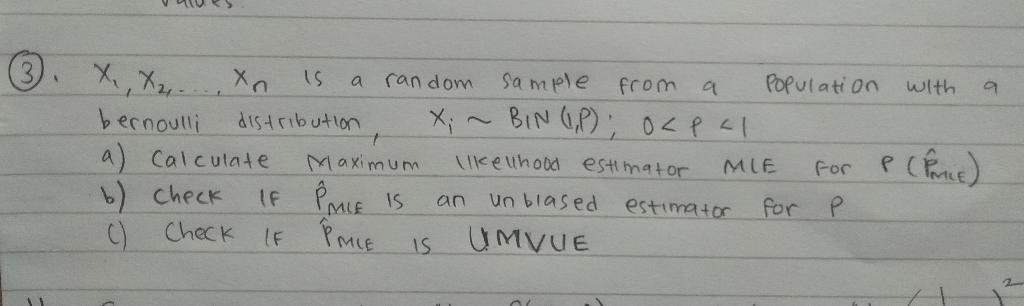 values
③. X₁, X₂, ..., Xn is a random sample from a Population with a
bernoulli distribution, Xi ~ BIN (1,P); 0<P<1
a) Calculate Maximum likelihood estimator MLE for P (P̂MLE)
b) Check IF P̂MLE is an unbiased estimator for P
c) Check IF P̂MLE is UMVUE